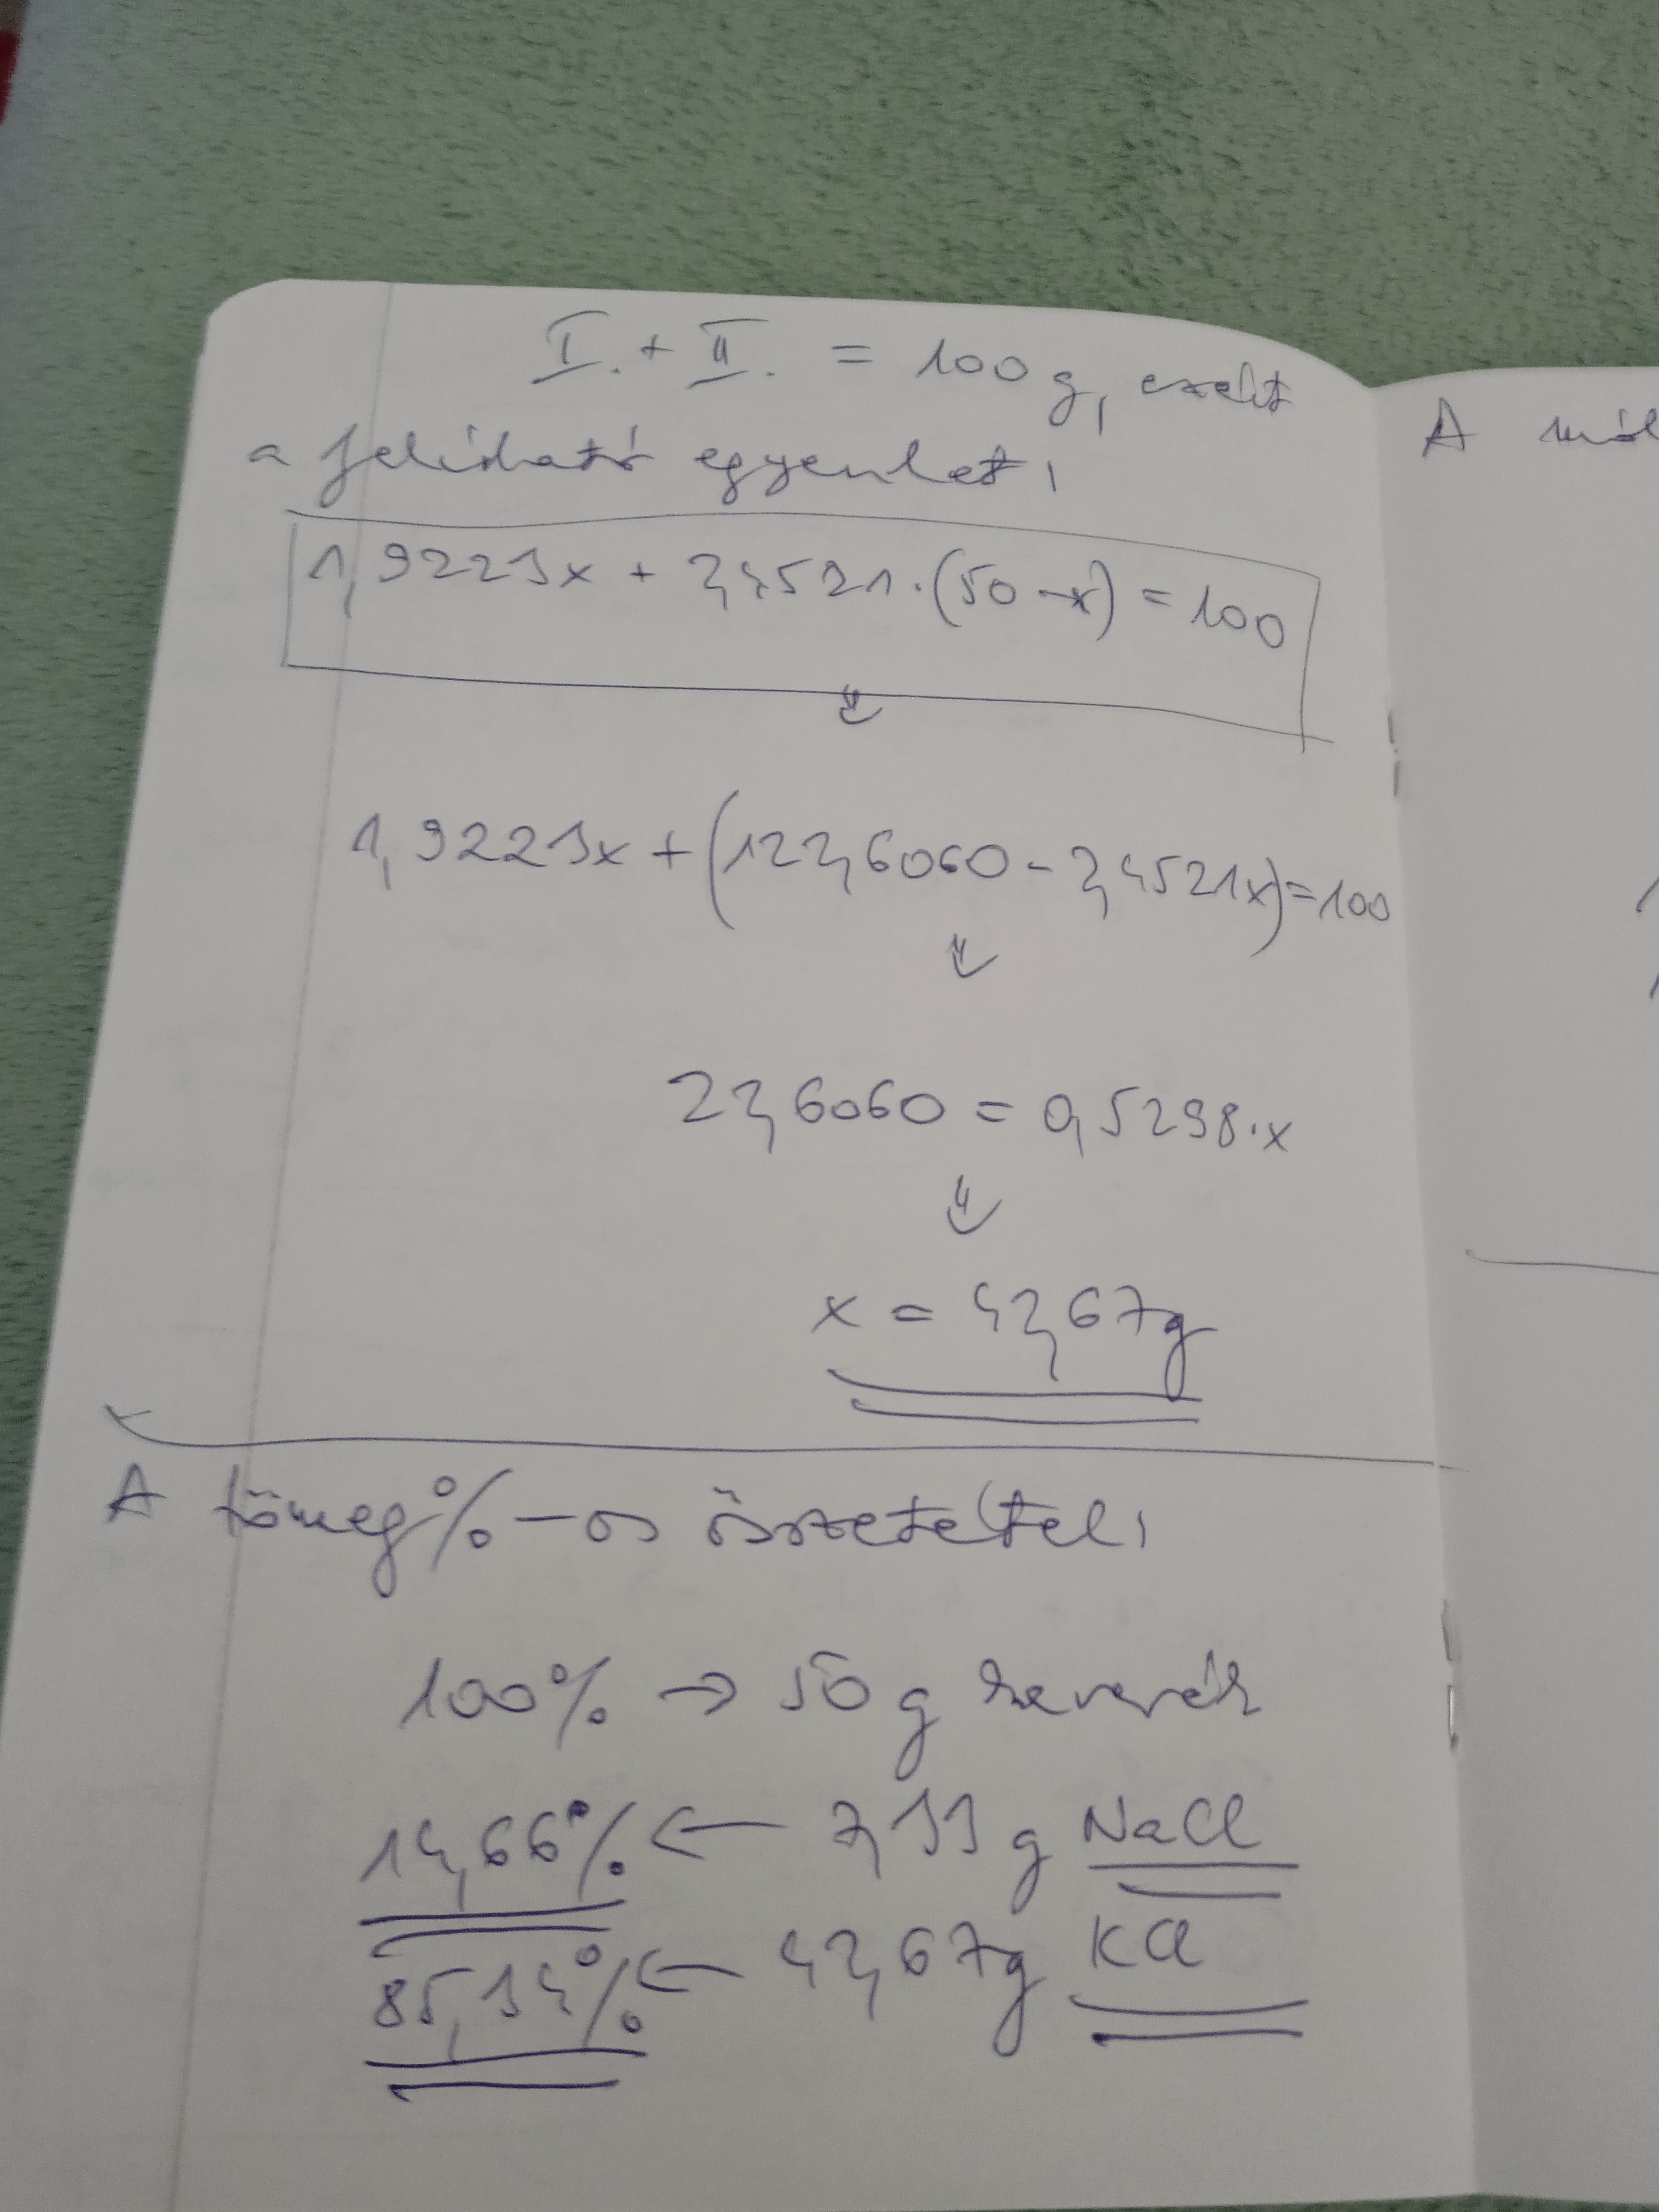 I. + II. = 100 g, ezért
a felírható egyenlet:
1,9223x + 2,4521·(50-x) = 100
⇓
1,9223x + (122,6060 - 2,4521x) = 100
⇓
22,6060 = 0,5298·x
⇓
x = 42,67g
A tömeg%-os összetétel:
100% → 50 g keverék
14,66% ← 7,33 g NaCl
85,34% ← 42,67g KCl
A mól